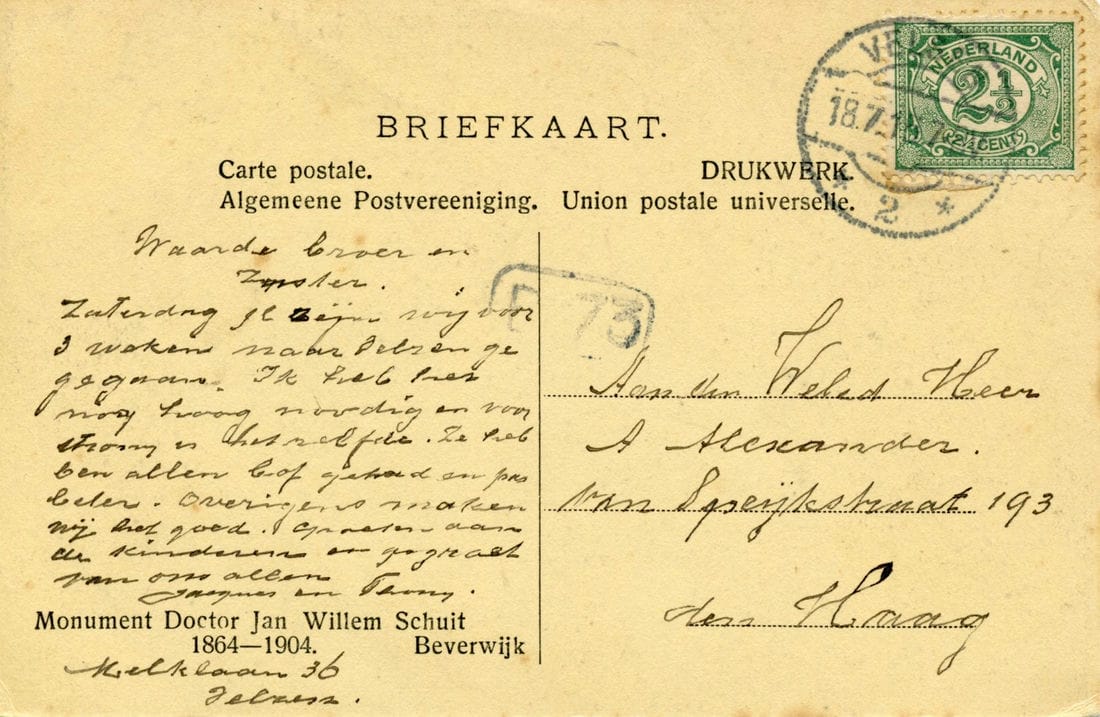 BRIEFKAART.
Carte postale.
DRUKWERK.
Algemeene Postvereeniging.
Union postale universelle.
NEDERLAND
2½
2½ CENT
18.7.1
2
73
Waarde broer en
Zuster.
Zaterdag jl zijn wij voor
3 weken naar Velzen ge
gegaan. Ik heb het
nog hoog noodig en voor
is hetzelfde. Ze heb
ben allen bof gehad en pas
beter. Overigens maken
wij het goed. Groeten aan
de kinderen en gegroet
van ons allen
Jacques en
Monument Doctor Jan Willem Schuit
1864—1904.
Beverwijk
Melklaan 36
Velzen.
Aan den Weled Heer
A Alexander.
van Speijkstraat 193
den Haag